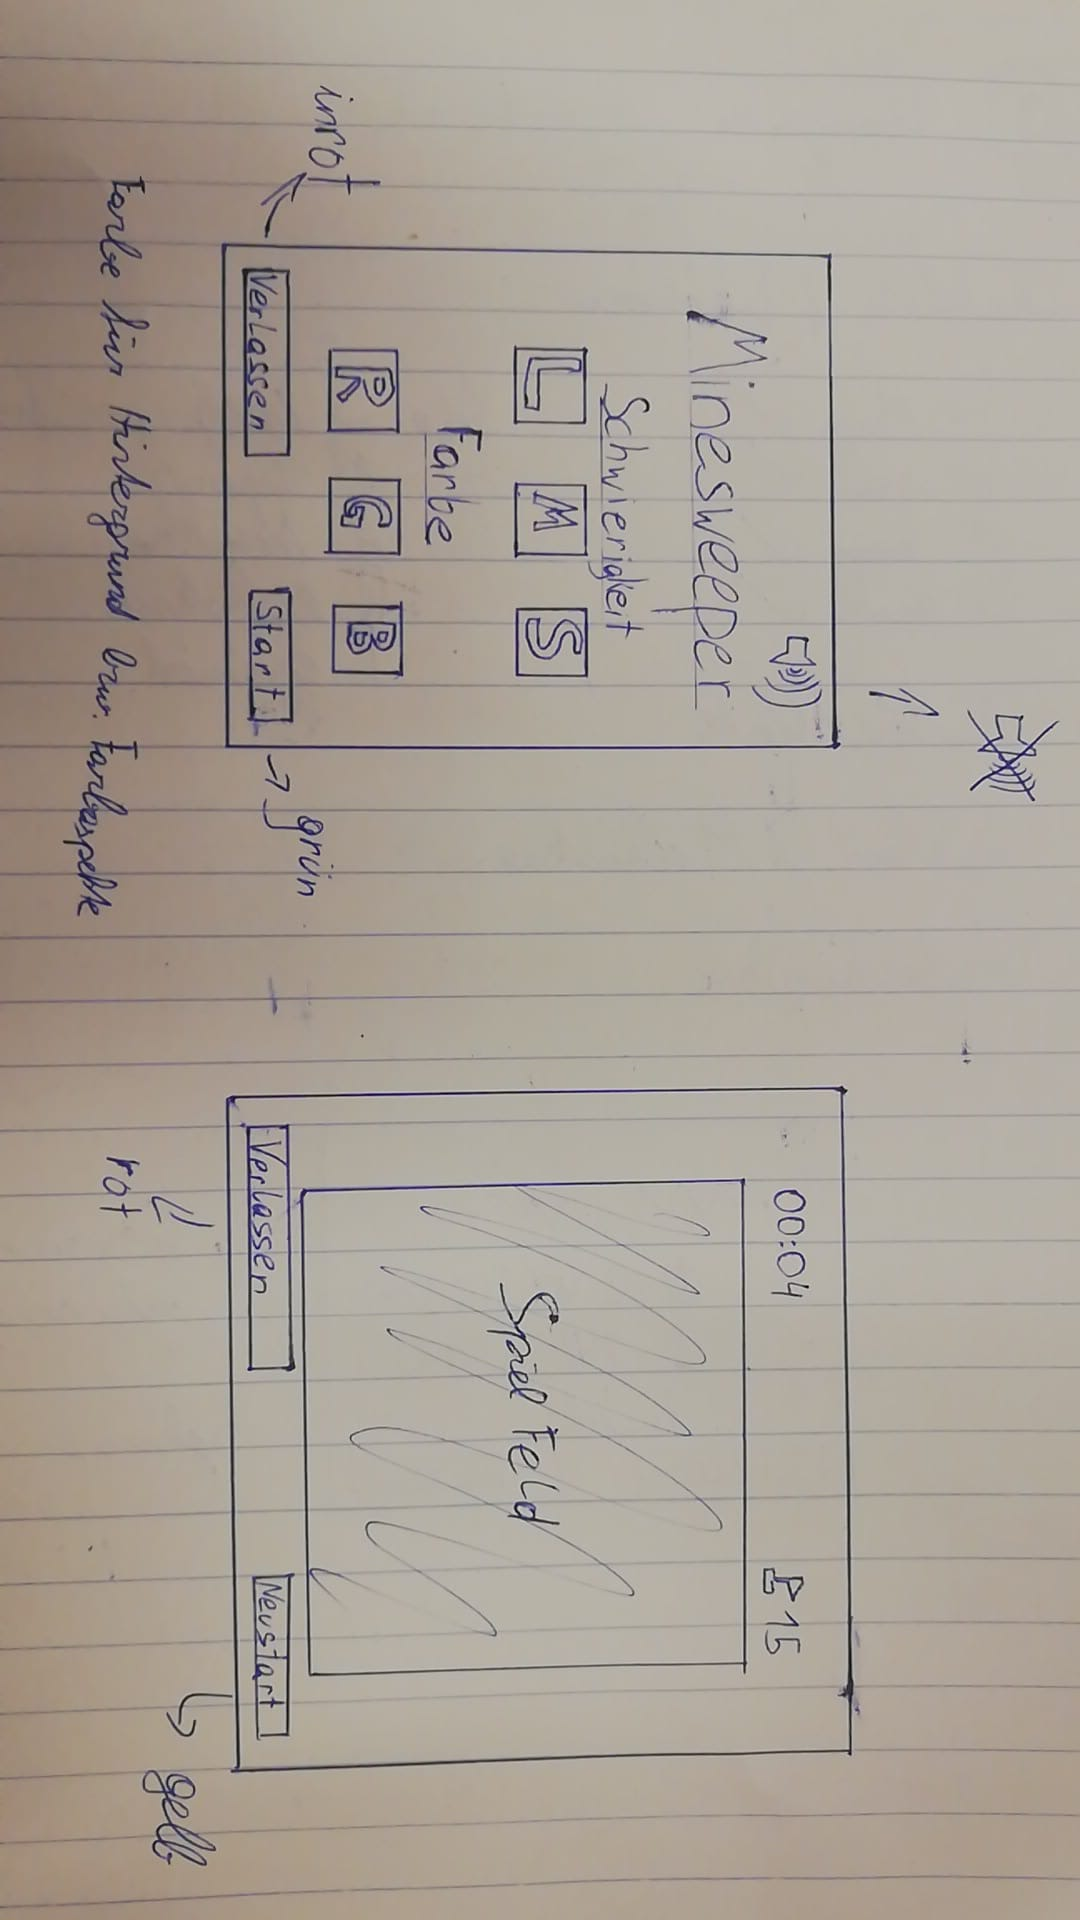 Minesweeper
Schwierigkeit
L M S
Farbe
R G B
Verlassen Start
in rot
grün
Farbe für Hintergrund bzw. Farbaspekte
00:04 15
Spiel Feld
Verlassen Neustart
rot
gelb